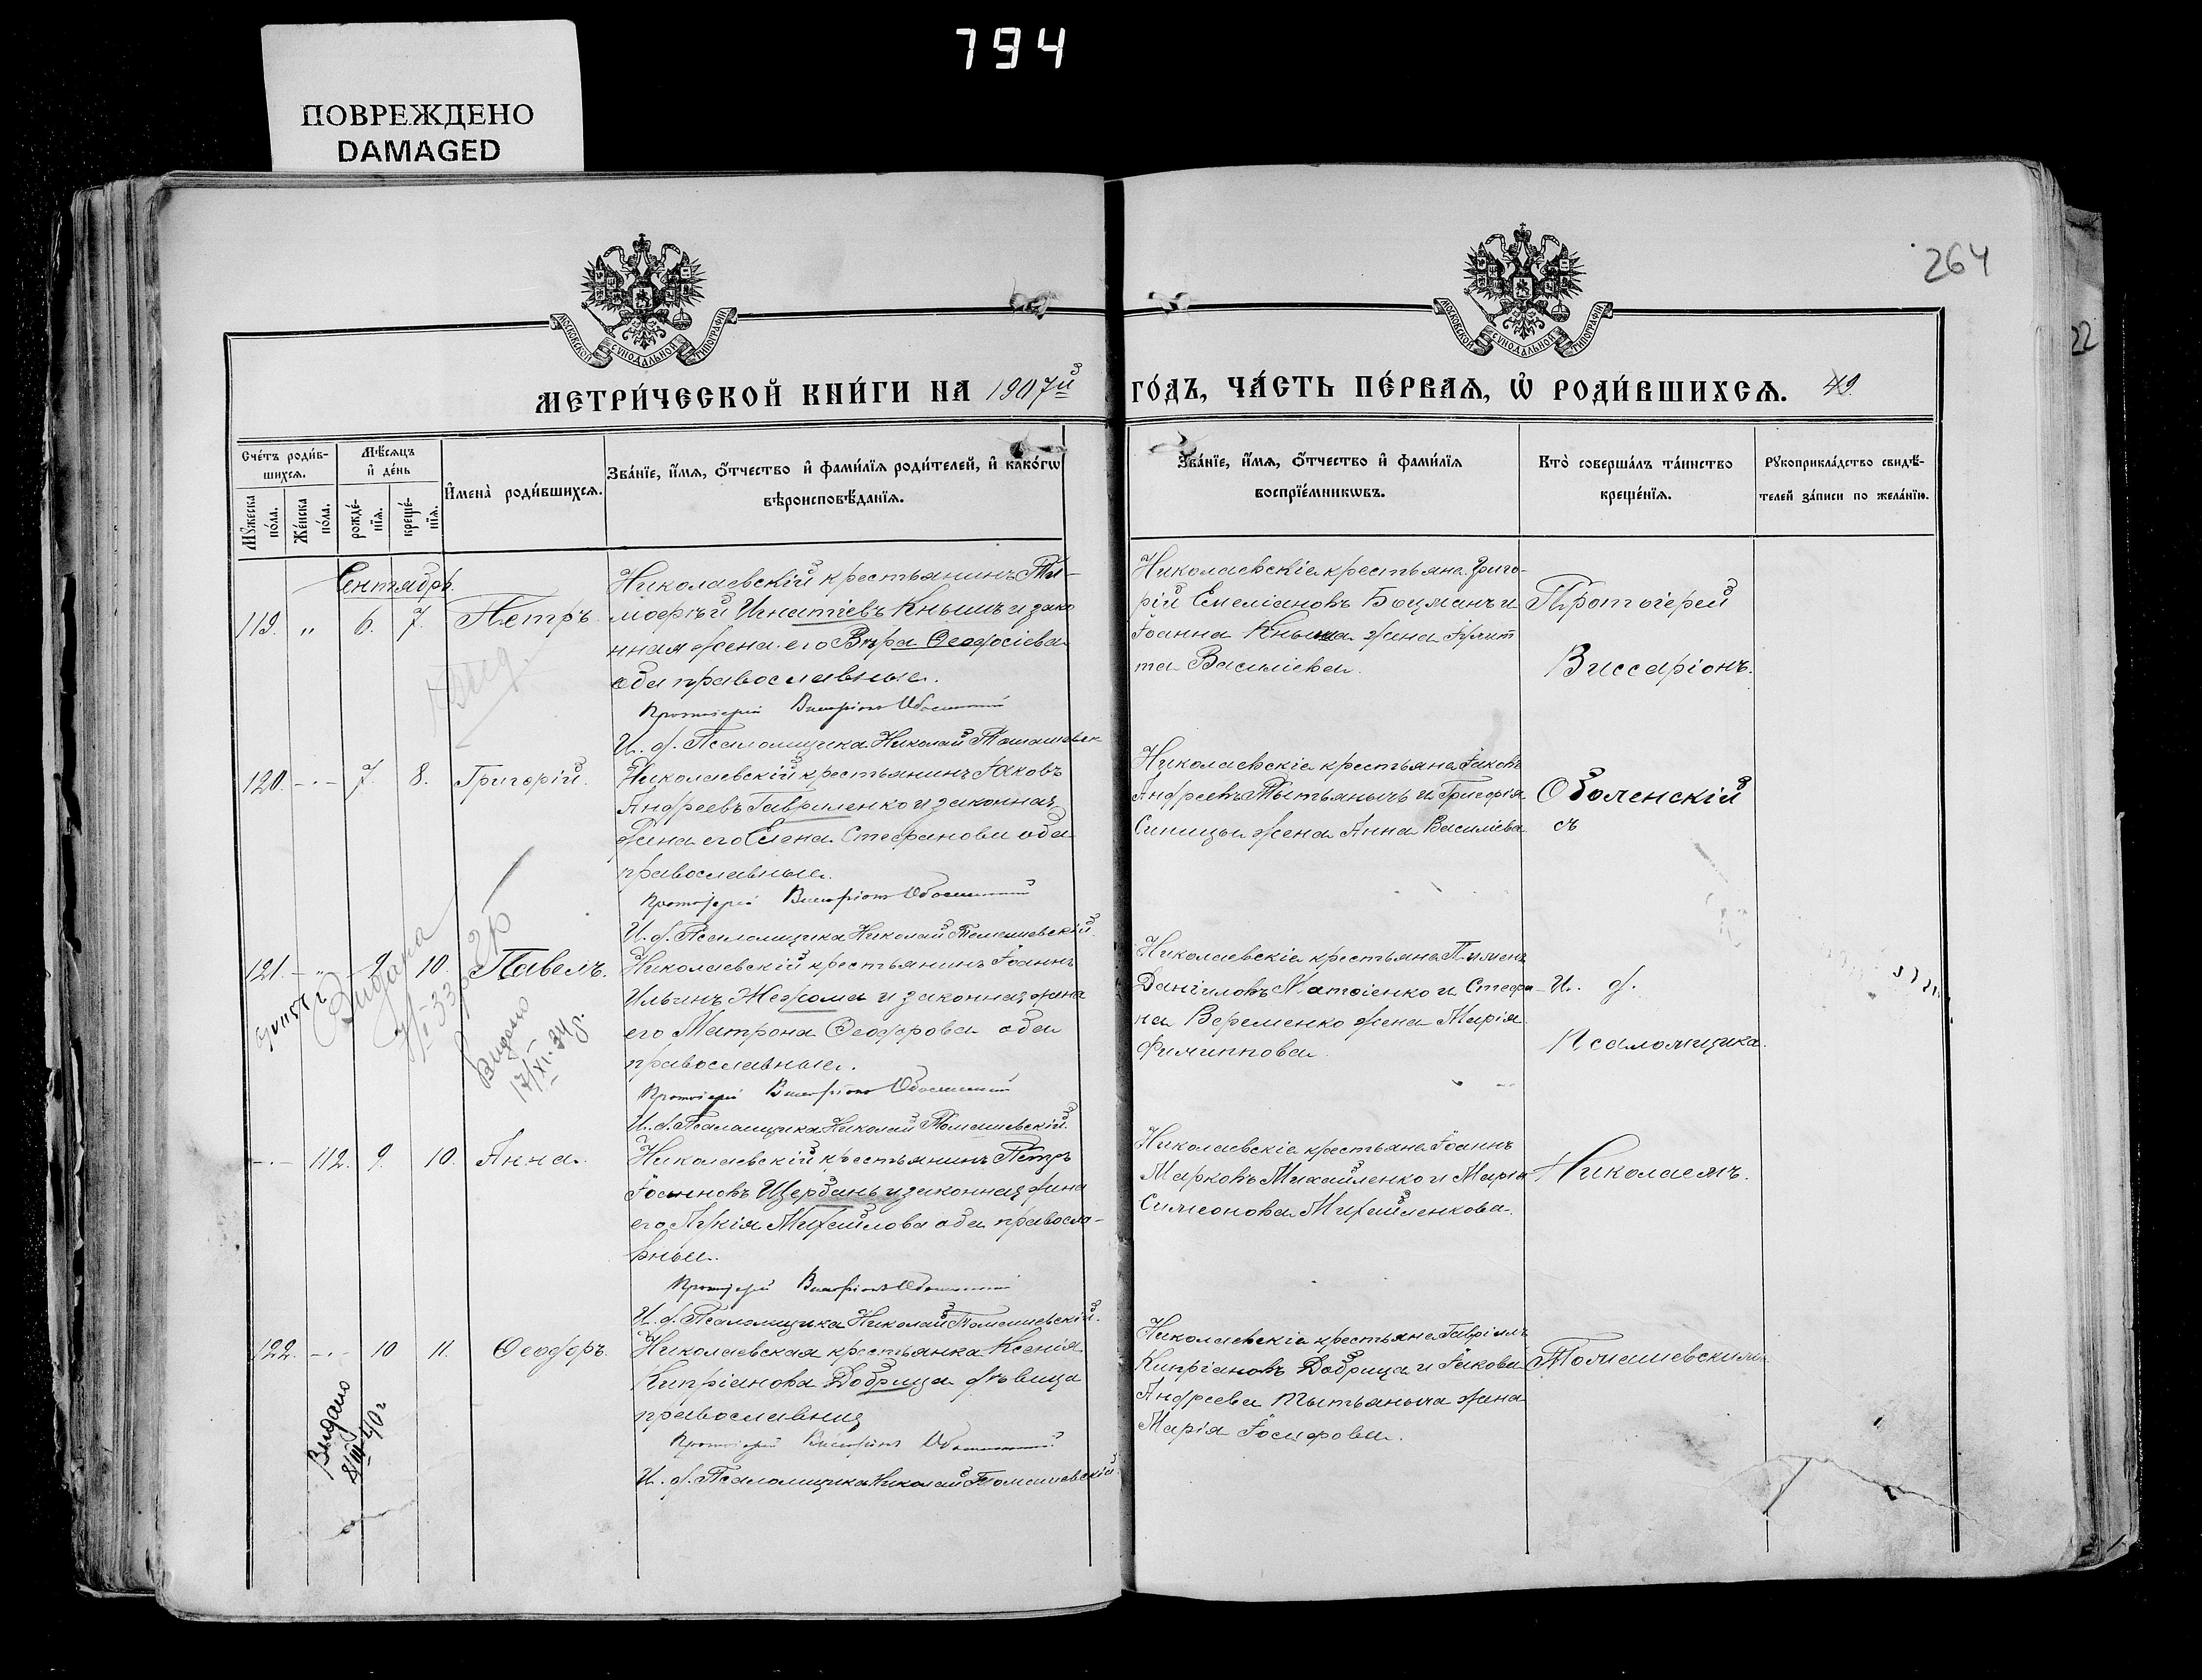 794
ПОВРЕЖДЕНО
DAMAGED
264
22
МОСКОВСКОЙ СИНОДАЛЬНОЙ ТИПОГРАФІИ
МОСКОВСКОЙ СИНОДАЛЬНОЙ ТИПОГРАФІИ
МЕТРИ́ЧЕСКОЙ КНИ́ГИ НА 1907й ГО́ДЪ, ЧА́СТЬ ПЕ́РВАѦ, Ѽ РОДИ́ВШИХСѦ. 49
Сче́тъ роди́в-
шихсѧ.
Мꙋжеска по́ла.
Же́нска по́ла.
Мѣ́сѧцъ
и҆ де́нь
рожде́-
нїѧ.
креще́-
нїѧ.
И҆мена̀ роди́вшихсѧ.
Зва́нїе, и҆́мѧ, ѻ҆́тчество и҆ фами́лїѧ роди́телей, и҆ како́гѡ
вѣроисповѣ́данїѧ.
Зва́нїе, и҆́мѧ, ѻ҆́тчество и҆ фами́лїѧ
воспрїе́мникѡвъ.
Кто̀ соверша́лъ та́инство
креще́нїѧ.
Рꙋкоприкла́дство свидѣ́-
телей за́писи по жела́нїю.
Сентябрь.
119. " 6. 7. Петръ.
Николаевскій крестьянинъ Ти-
мофѣй Игнатіевъ Кнышъ и зако
нная жена его Вѣра Ѳеодосіева
оба православные.
Протоіерей Виссаріонъ Оболенскій
И. д. Псаломщика Николай Томашевск
Николаевскіе крестьяне Григо-
рій Емеліановъ Боцманъ и
Іоанна Кныша жена Іулит
та Василіева.
120. -"- 7. 8. Григорій.
Николаевскій крестьянинъ Іаковъ
Андреевъ Гавриленко и законная
жена его Елена Стефанова оба
православные.
Протоіерей Виссаріонъ Оболенскій
И. д. Псаломщика Николай Томашевскій.
Николаевскіе крестьяне Іаковъ
Андреевъ Тытьянычъ и Григорія
Синицы жена Анна Василіева
121. -"- 9. 10. Павелъ.
Видано
17/XI-34 г.
Николаевскій крестьянинъ Іоаннъ
Ильинъ Жефома и законная жена
его Матрона Ѳеодорова оба
православные.
Протоіерей Виссаріонъ Оболенскій
И. д. Псаломщика Николай Томашевскій.
Николаевскіе крестьяне Пимен
Даніиловъ Матвіенко и Стефа-
на Веременко жена Марія
Филиппова.
-"- 112. 9. 10. Анна.
Николаевскій крестьянинъ Петръ
Іоанновъ Щербань и законная жена
его Лукія Михайлова оба правосла-
вные.
Протоіерей Виссаріонъ Оболенскій
И. д. Псаломщика Николай Томашевскій.
Николаевскіе крестьяне Іоаннъ
Марковъ Михайленко и Марія
Симеонова Михайленкова.
122. -"- 10 11. Ѳеодоръ.
Выдано
8/III-40 г
Николаевская крестьянка Ксенія
Кипріанова Добрица дѣвица
православная
Протоіерей Виссаріонъ Оболенскій
И. д. Псаломщика Николай Томашевскій.
Николаевскіе крестьяне Гавріилъ
Кипріановъ Добрица и Іакова
Андреева Тытьяныча жена
Марія Іосифова.
Протоіерей
Виссаріонъ.
Оболенскій
съ
И. д.
Псаломщика
Николаемъ.
Томашевскимъ